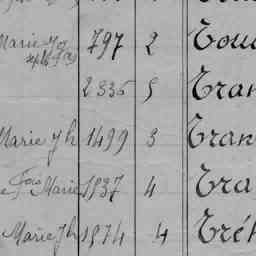 Marie 797 2 Tou
2335 5 Tran
Marie Jh 1499 3 Tran
Fois Marie 1937 4 Tra
Marie Jh 1974 4 Tré